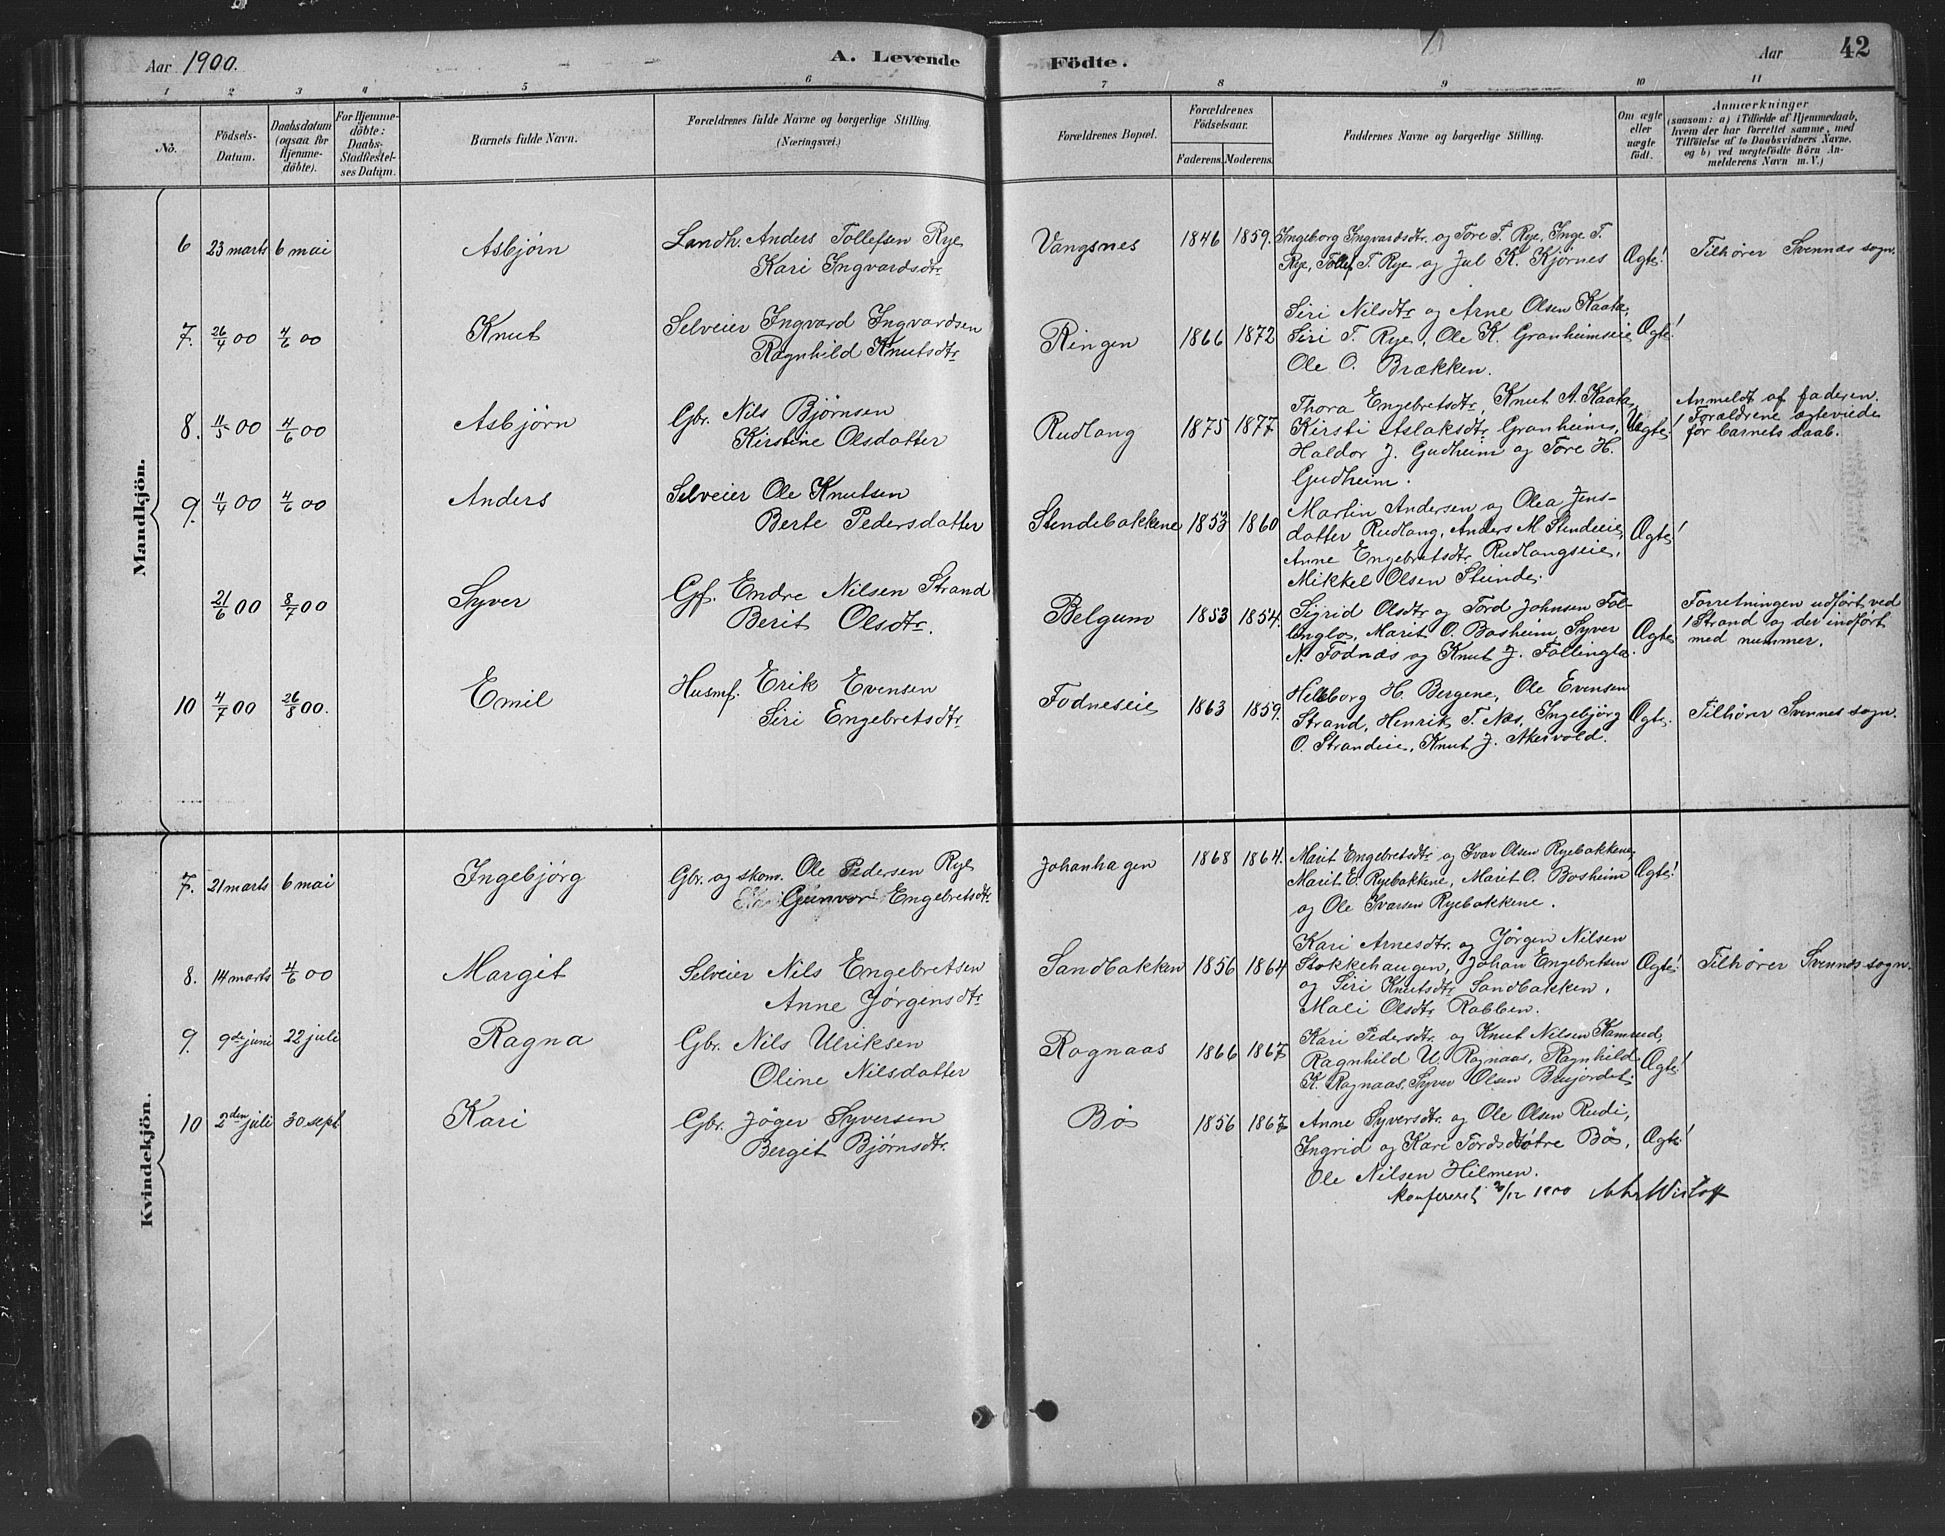 Aar 1900.
A. Levende
Födte.
Aar
42
1 2 3 4 5 6 7 8 9 10 11
No.
Födsels-
Datum.
Daabsdatum
(ogsaa for
Hjemme-
döbte).
For Hjemme-
döbte:
Daabs-
Stadfæstel-
ses Datum.
Barnets fulde Navn.
Forældrenes fulde Navne og borgerlige Stilling
(Næringsvei.)
Forældrenes Bopæl.
Forældrenes
Födselsaar.
Faderens. Moderens.
Faddernes Navne og borgerlige Stilling.
Om ægte
eller
uægte
födt.
Anmærkninger
(saasom: a) i Tilfælde af Hjemmedaab,
hvem der har forrettet samme, med
Tilföielse af to Daabsvidners Navne,
og b) ved uægtefödte Börn An-
melderens Navn m. V.)
Mandkjön.
6 23 marts 6 mai Asbjørn
Landh. Anders Tollefsen Rye
Kari Ingvardsdtr.
Vangsnes 1846 1859.
Ingeborg Ingvardsdtr. og Tore T. Rye, Inge T.
Rye, Tollef T. Rye og Jul K. Kjørnes
Ægte! Tilhører Svennæs sogn.
7. 26/4 00 4/6 00 Knut
Selveier Ingvard Ingvardsen
Ragnhild Knutsdtr
Ringen 1866 1872
Siri Nilsdtr og Arne Olsen Kaata,
Siri T. Rye, Ole K. Granheimseie
Ole O. Brækken.
Ægte!
8. 11/5 00 4/6 00 Asbjørn
Gbr. Nils Bjørnsen
Kirstine Olsdatter
Rudlang 1875 1877
Thora Engebretsdtr, Knut A. Kaata,
Kirsti Aslaksdtr Granheims,
Haldor J. Gudheim og Tore H.
Gudheim.
Uægte!
Anmeldt af faderen.
Forældrene ægteviede
før barnets daab.
9. 11/4 00 4/6 00 Anders
Selveier Ole Knutsen
Berte Pedersdatter
Stendebakkene 1853 1860
Martin Andersen og Olea Jens-
datter Rudlang, Anders M. Stendeeie,
Anne Engebretsdtr. Rudlangseie,
Mikkel Olsen Stende.
Ægte!
21/6 00 8/7 00 Syver
Gf. Endre Nilsen Strand
Berit Olsdtr.
Belgum 1853 1854.
Sigrid Olsdtr og Tord Johnsen Føl-
linglo, Marit O. Bosheim, Syver
N. Fodnæs og Knut J. Føllinglo.
Ægte!
Forretningen udført ved
Strand og der indført
med nummer.
10 4/7 00 26/8 00. Emil
Husmf. Erik Evensen
Siri Engebretsdtr
Fodneseie 1863 1859.
Helleborg H. Bergene, Ole Evensen
Strand, Henrik T. Næs, Ingebjørg
O. Strandeie, Knut J. Akervold.
Ægte. Tilhører Svennes sogn.
Kvindekjön.
7. 21 marts 6 mai Ingebjørg
Gbr. og skom. Ole Pedersen Rye
Gunvor Engebretsdtr.
Johanhagen 1868 1864.
Marit Engebretsdtr og Ivar Olsen Ryebakkene,
Marit E. Ryebakkene, Marit O. Bosheim
og Ole Ivarsen Ryebakkene.
Ægte!
8. 14 marts 4/6 00 Margit
Selveier Nils Engebretsen
Anne Jørgensdtr
Sandbakken 1856 1864
Kari Arnesdtr. og Jørgen Nilsen
Stokkehaugen, Johan Engebretsen
og Siri Knutsdtr Sandbakken,
Mali Olsdtr Robben.
Ægte! Tilhører Svennes sogn.
9. 9de juni 22 juli Ragna
Gbr. Nils Ulriksen
Oline Nilsdatter
Rognaas 1866 1867
Kari Pedersdtr. og Knut Nilsen Kamrud,
Ragnhild U. Rognaas, Ragnhild
K. Rognaas, Syver Olsen Brujordet
Ægte!
10 2den juli 30 sept Kari
Gbr. Jøger Syversen
Bergit Bjørnsdtr.
Bø 1856 1867
Anne Syversdtr. og Ole Olsen Rudi,
Ingrid og Kari Tordsdøtre Bø,
Ole Nilsen Hilmen.
Ægte!
Konfereret /12 1900